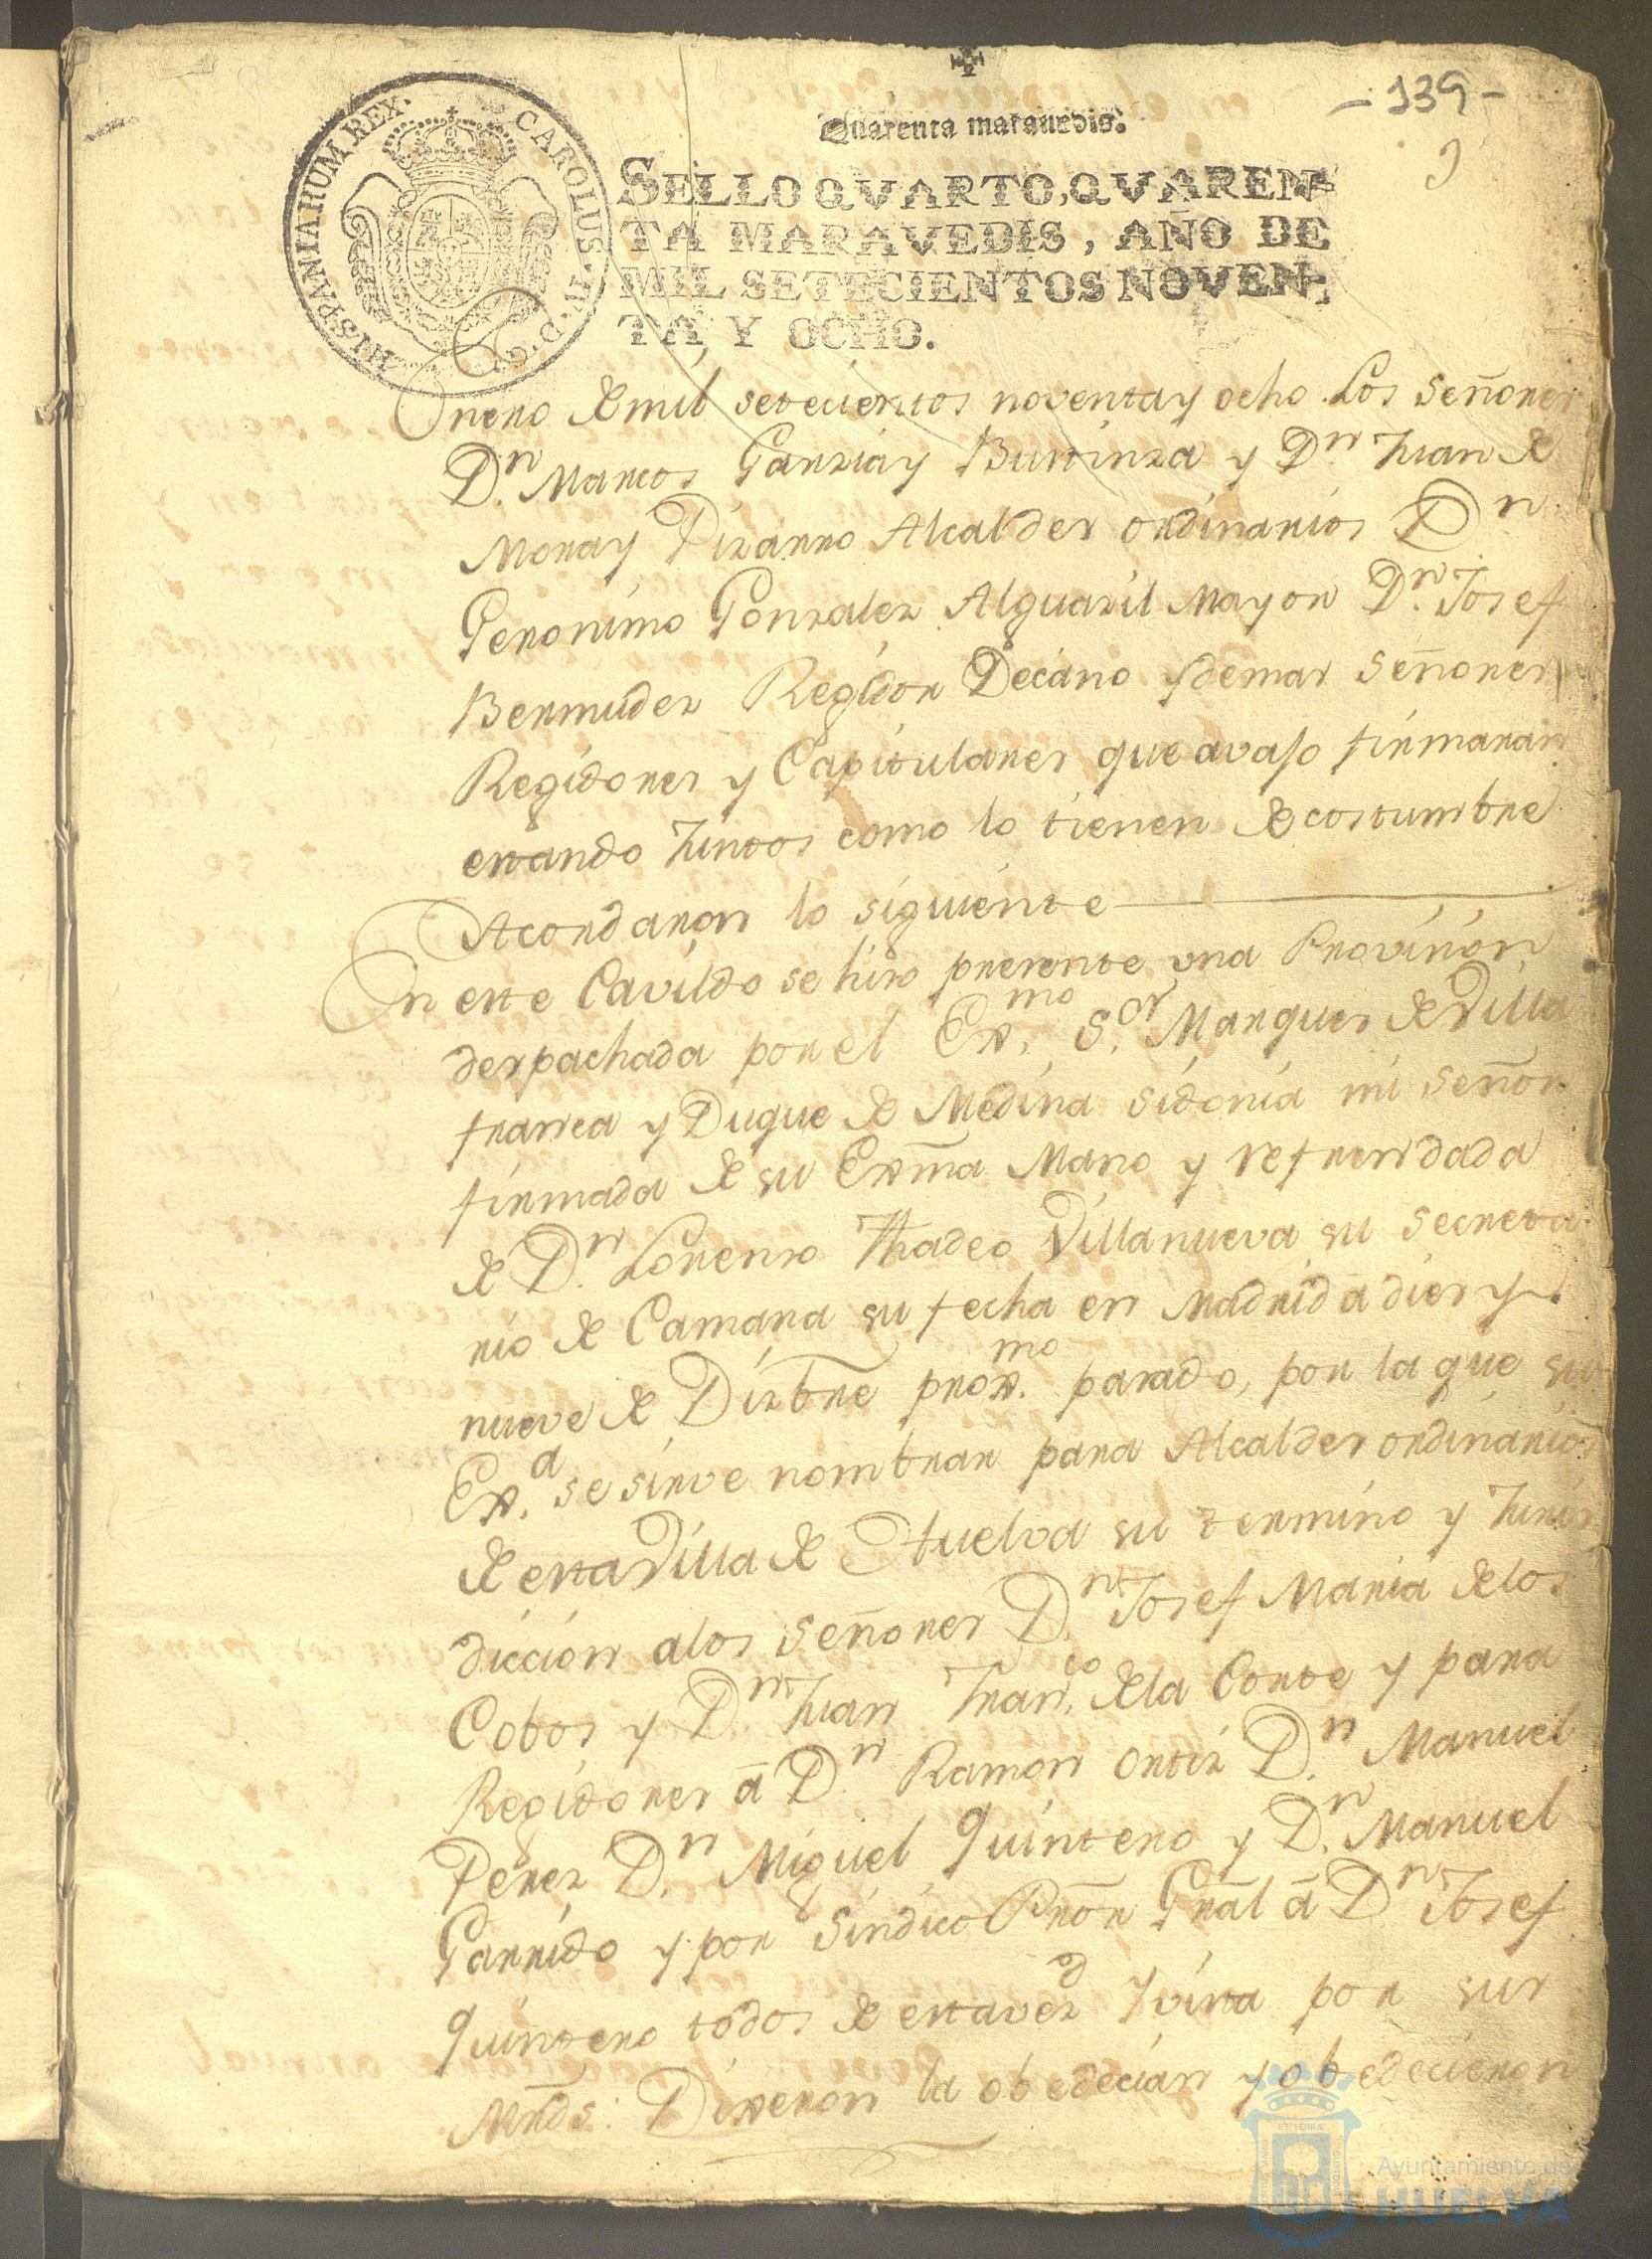 -139-
Quarenta marauedis.
SELLO QVARTO, QVAREN-
TA MARAVEDIS, AÑO DE
MIL SETECIENTOS NOVEN-
TA Y OCHO.
CAROLUS. IV. D. G. HISPANIARUM REX.
Enero de mil setecientos noventa y ocho los señores
Dn. Marcos Garzia y Burinza y Dn. Juan de
Mora y Pizarro Alcaldes ordinarios Dn.
Geronimo Gonzalez Alguazil Mayor Dn. Josef
Bermudez Regidor Decano y demas señores
Regidores y Capitulares que avajo firmaran
estando Juntos como lo tienen de costumbre
Acordaron lo siguiente
En este Cavildo se hizo presente una Provision
despachada por el Exmo. Sor. Marques de Villa
franca y Duque de Medina Sidonia mi señor
firmada de su Exma Mano y refrendada
de Dn. Lorenzo Thadeo Villanueva su secreta
rio de Camara su fecha en Madrid a diez y
nueve de Dizbre proxmo. pasado, por la que su
Exa. se sirve nombrar para Alcaldes ordinarios
de esta Villa de Huelva su termino y Juris
diccion a los señores Dn. Josef Maria de los
Cobos y Dn. Juan Franco. de la Corte y para
Regidores a Dn. Ramon Ortiz Dn. Manuel
Perez Dn. Miguel Quintero y Dn. Manuel
Garrido y por Sindico Pror Gral a Dn. Josef
Quintero todos de esta vezd y vista por sus
Mrds: Dixeron la obedecian y obedecieron
Ayuntamiento de
HUELVA